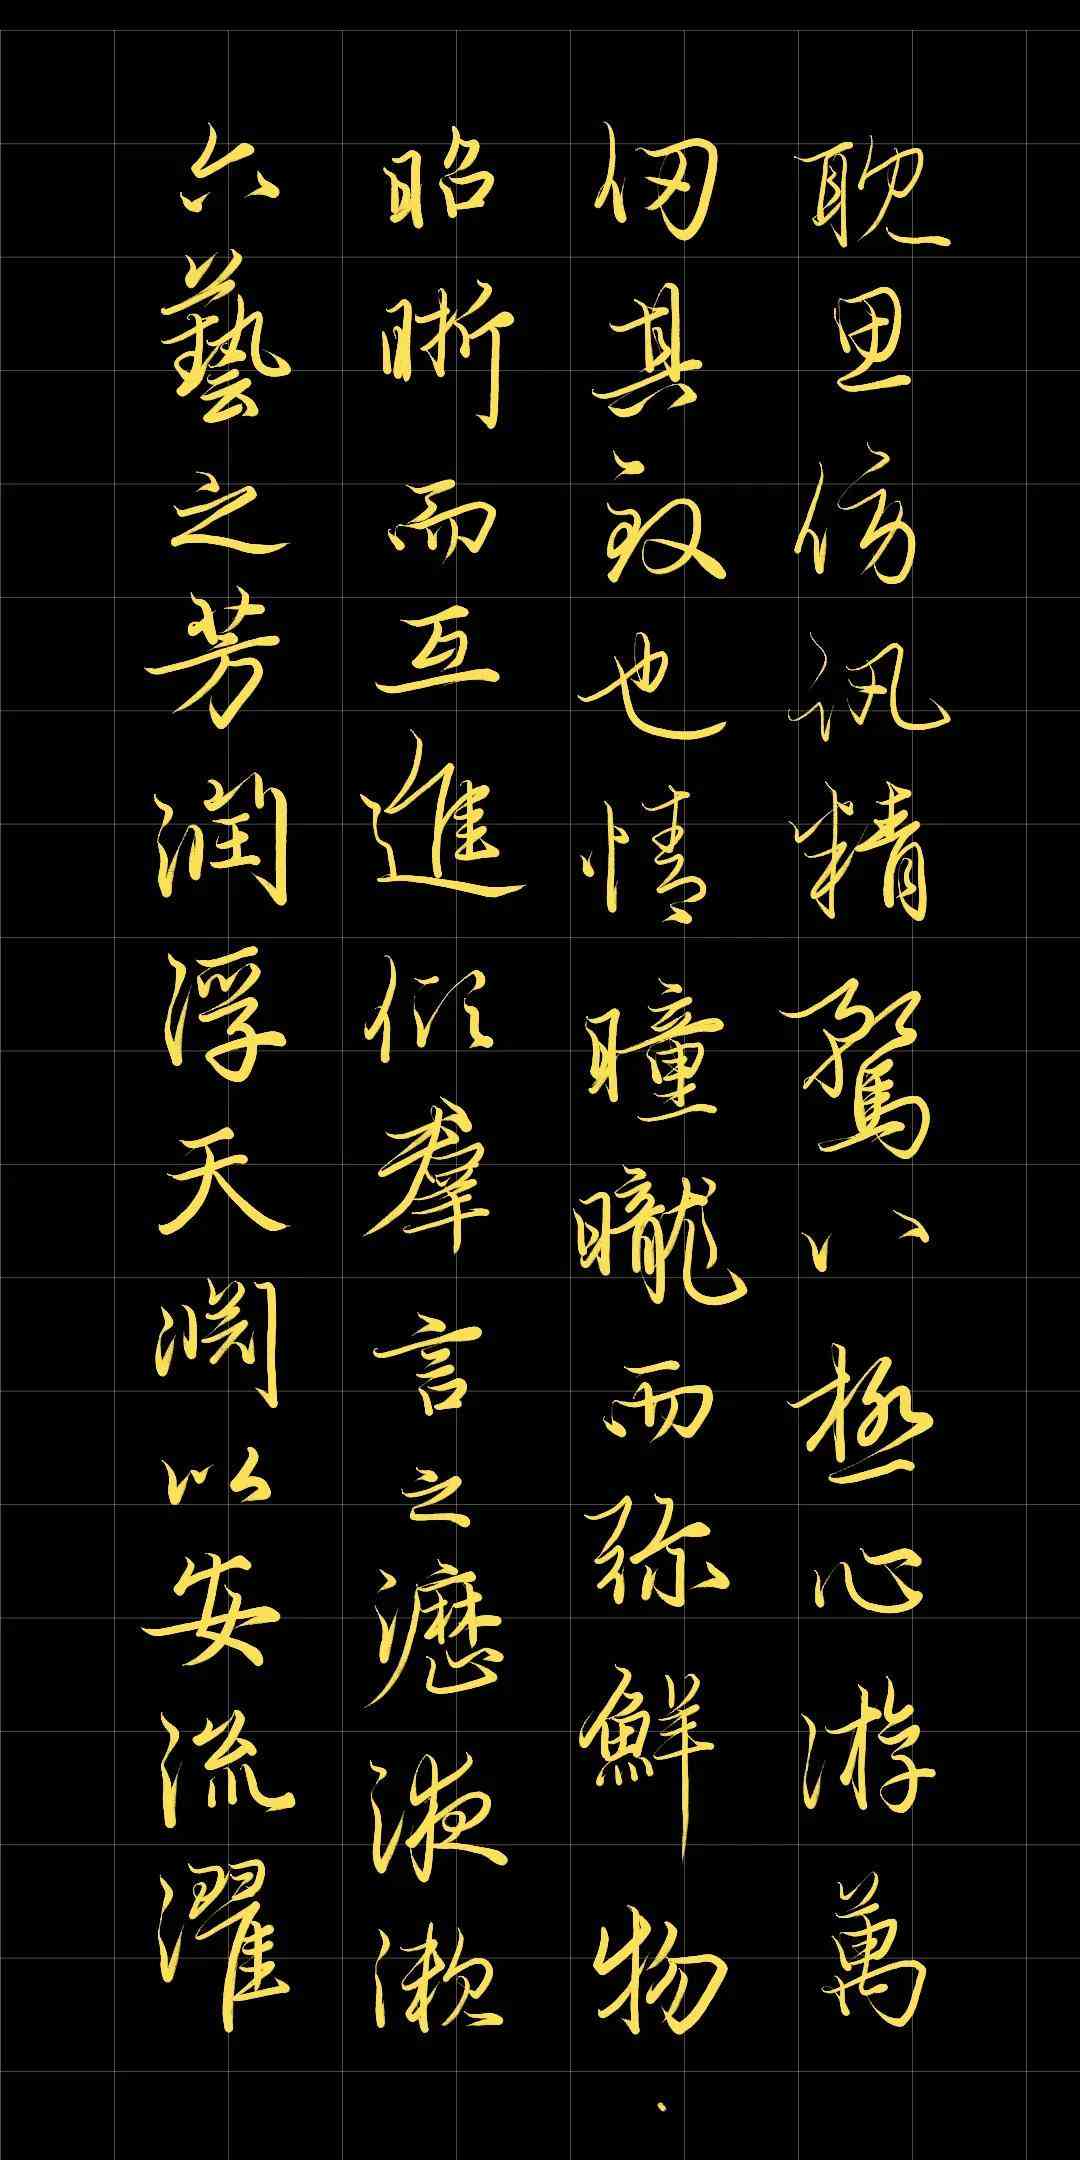 耽思傍訊精騖八極心游萬
仞其致也情曈曨而弥鮮物
昭晰而互進傾羣言之瀝液漱
六藝之芳潤浮天淵以安流濯